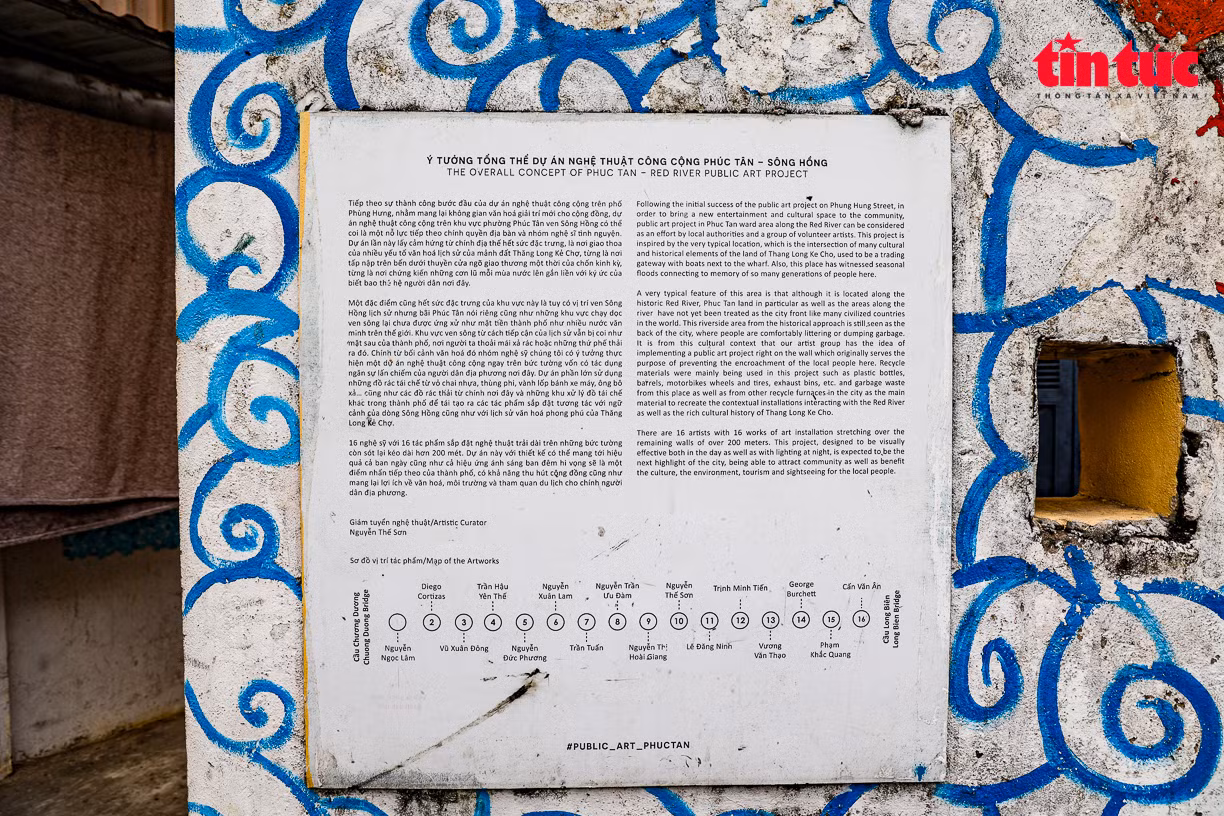 tin tức
THÔNG TẤN XÃ VIỆT NAM
Ý TƯỞNG TỔNG THỂ DỰ ÁN NGHỆ THUẬT CÔNG CỘNG PHÚC TÂN – SÔNG HỒNG
THE OVERALL CONCEPT OF PHUC TAN – RED RIVER PUBLIC ART PROJECT
Tiếp theo sự thành công bước đầu của dự án nghệ thuật công cộng trên phố
Phùng Hưng, nhằm mang lại không gian văn hoá giải trí mới cho cộng đồng, dự
án nghệ thuật công cộng trên khu vực phường Phúc Tân ven Sông Hồng có thể
coi là một nỗ lực tiếp theo chính quyền địa bàn và nhóm nghệ sĩ tình nguyện.
Dự án lần này lấy cảm hứng từ chính địa thế hết sức đặc trưng, là nơi giao thoa
của nhiều yếu tố văn hoá lịch sử của mảnh đất Thăng Long Kẻ Chợ, từng là nơi
tấp nập trên bến dưới thuyền cửa ngõ giao thương một thời của chốn kinh kỳ,
từng là nơi chứng kiến những cơn lũ mỗi mùa nước lên gắn liền với ký ức của
biết bao thế hệ người dân nơi đây.
Một đặc điểm cũng hết sức đặc trưng của khu vực này là tuy có vị trí ven Sông
Hồng lịch sử nhưng bãi Phúc Tân nói riêng cũng như những khu vực chạy dọc
ven sông lại chưa được ứng xử như mặt tiền thành phố như nhiều nước văn
minh trên thế giới. Khu vực ven sông từ cách tiếp cận của lịch sử vẫn bị coi như
mặt sau của thành phố, nơi người ta thoải mái xả rác hoặc những thứ phế thải
ra đó. Chính từ bối cảnh văn hoá đó nhóm nghệ sỹ chúng tôi có ý tưởng thực
hiện một dự án nghệ thuật công cộng ngay trên bức tường vốn có tác dụng
ngăn sự lấn chiếm của người dân địa phương nơi đây. Dự án phần lớn sử dụng
những đồ rác tái chế từ vỏ chai nhựa, thùng phi, vành lốp bánh xe máy, ống bô
xả... cũng như các đồ rác thải từ chính nơi đây và những khu xử lý đồ tái chế
khác trong thành phố để tái tạo ra các tác phẩm sắp đặt tương tác với ngữ
cảnh của dòng Sông Hồng cũng như với lịch sử văn hoá phong phú của Thăng
Long Kẻ Chợ.
16 nghệ sỹ với 16 tác phẩm sắp đặt nghệ thuật trải dài trên những bức tường
còn sót lại kéo dài hơn 200 mét. Dự án này với thiết kế có thể mang tới hiệu
quả cả ban ngày cũng như cả hiệu ứng ánh sáng ban đêm hi vọng sẽ là một
điểm nhấn tiếp theo của thành phố, có khả năng thu hút cộng đồng cũng như
mang lại lợi ích về văn hoá, môi trường và tham quan du lịch cho chính người
dân địa phương.
Following the initial success of the public art project on Phung Hung Street, in
order to bring a new entertainment and cultural space to the community,
public art project in Phuc Tan ward area along the Red River can be considered
as an effort by local authorities and a group of volunteer artists. This project is
inspired by the very typical location, which is the intersection of many cultural
and historical elements of the land of Thang Long Ke Cho, used to be a trading
gateway with boats next to the wharf. Also, this place has witnessed seasonal
floods connecting to memory of so many generations of people here.
A very typical feature of this area is that although it is located along the
historic Red River, Phuc Tan land in particular as well as the areas along the
river have not yet been treated as the city front like many civilized countries
in the world. This riverside area from the historical approach is still seen as the
back of the city, where people are comfortably littering or dumping garbage.
It is from this cultural context that our artist group has the idea of
implementing a public art project right on the wall which originally serves the
purpose of preventing the encroachment of the local people here. Recycle
materials were mainly being used in this project such as plastic bottles,
barrels, motorbikes wheels and tires, exhaust bins, etc. and garbage waste
from this place as well as from other recycle furnaces in the city as the main
material to recreate the contextual installations interacting with the Red River
as well as the rich cultural history of Thang Long Ke Cho.
There are 16 artists with 16 works of art installation stretching over the
remaining walls of over 200 meters. This project, designed to be visually
effective both in the day as well as with lighting at night, is expected to be the
next highlight of the city, being able to attract community as well as benefit
the culture, the environment, tourism and sightseeing for the local people.
Giám tuyển nghệ thuật/Artistic Curator
Nguyễn Thế Sơn
Sơ đồ vị trí tác phẩm/Map of the Artworks
Cầu Chương Dương
Chuong Duong Bridge
Diego
Cortizas
Trần Hậu
Yên Thế
Nguyễn
Xuân Lam
Nguyễn Trần
Ưu Đàm
Nguyễn
Thế Sơn
Trịnh Minh Tiến
George
Burchett
Cấn Văn Ân
2 3 4 5 6 7 8 9 10 11 12 13 14 15 16
Nguyễn
Ngọc Lâm
Vũ Xuân Đông
Nguyễn
Đức Phương
Trần Tuấn
Nguyễn Thị
Hoài Giang
Lê Đăng Ninh
Vương
Văn Thạo
Phạm
Khắc Quang
Cầu Long Biên
Long Bien Bridge
#PUBLIC_ART_PHUCTAN